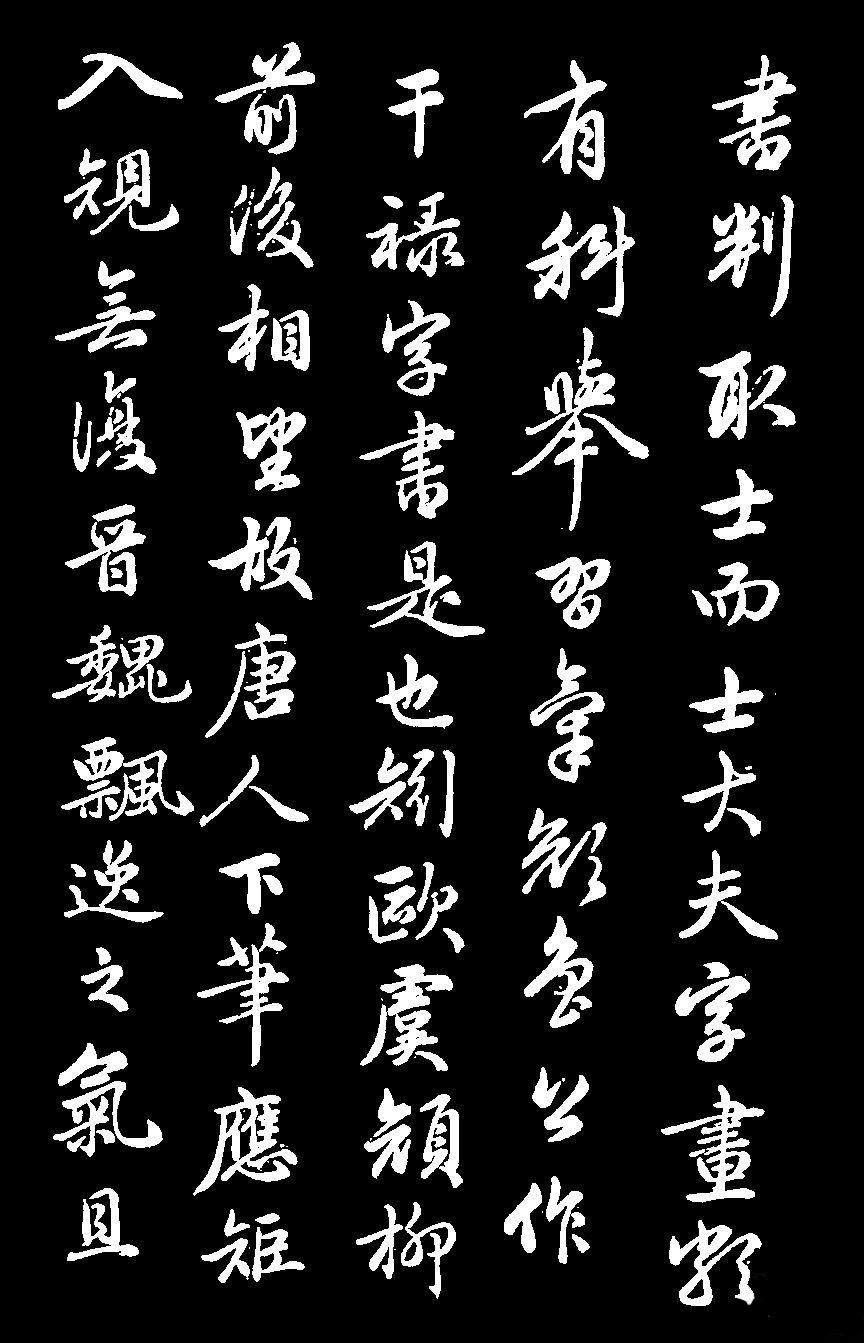 書判取士而士大夫字畫類
有科舉習氣顏魯公作
干禄字書是也矧歐虞顏柳
前後相望故唐人下筆應矩
入規無復晉魏飄逸之氣且